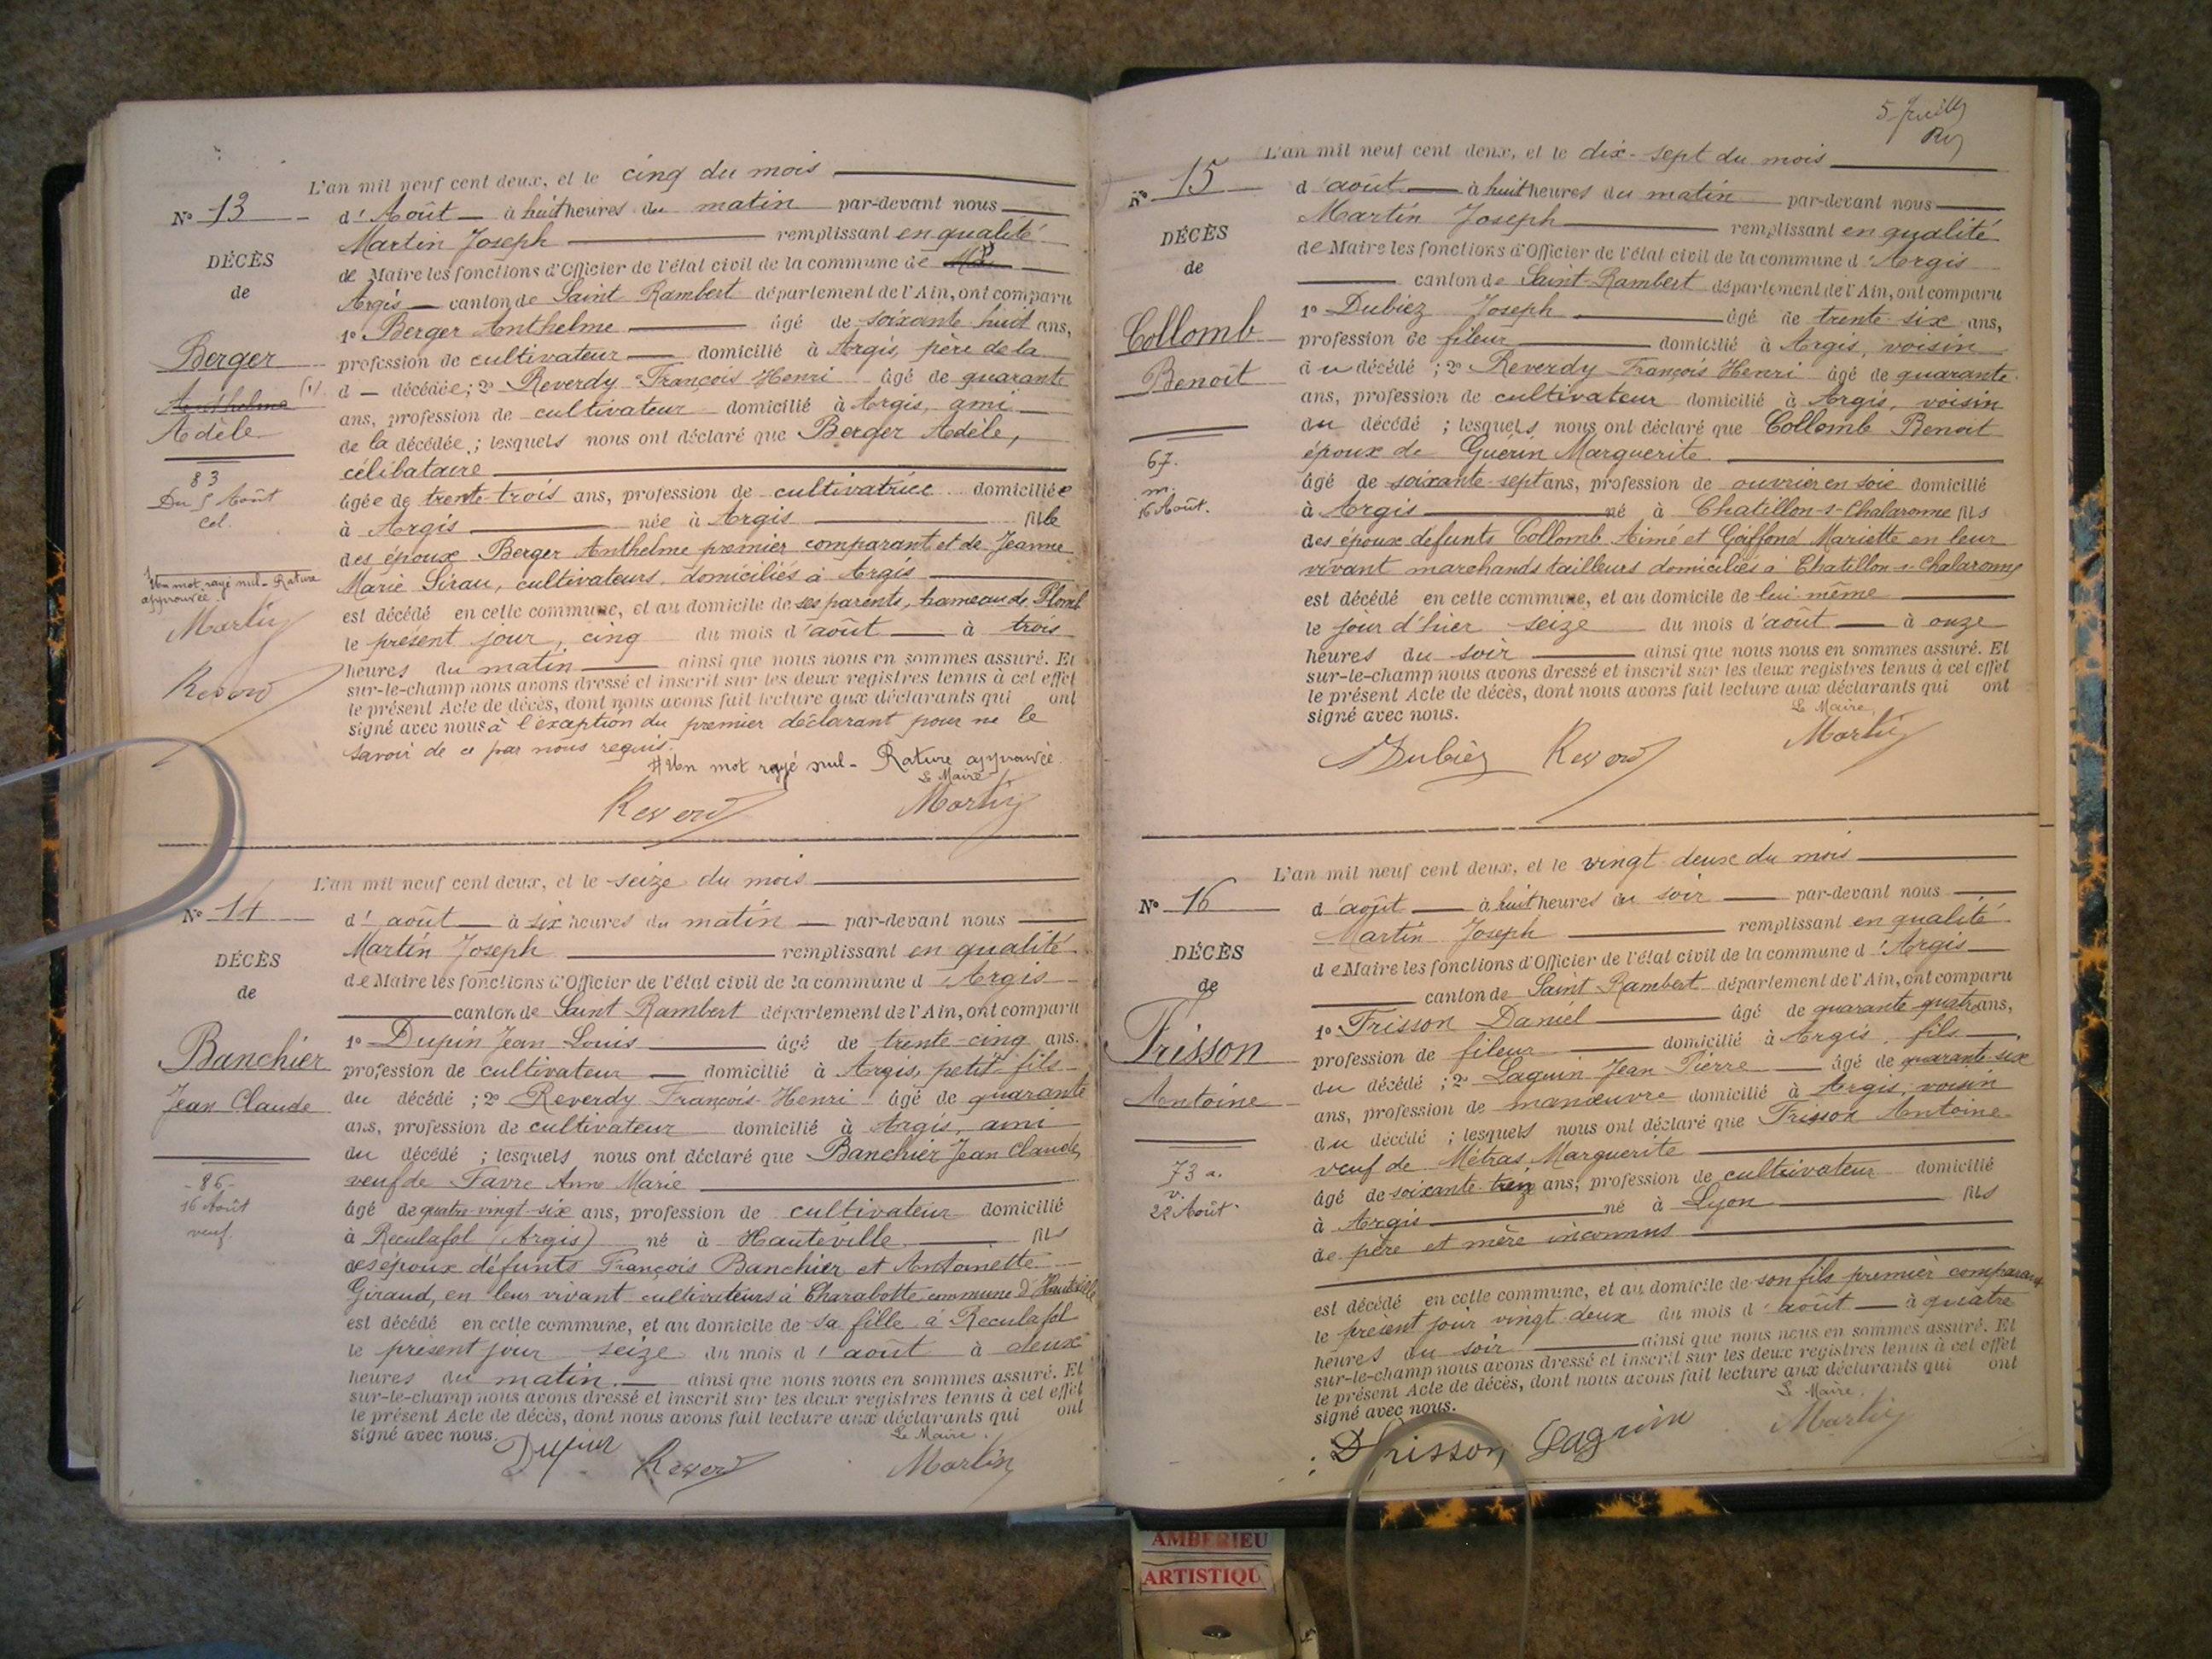 L'an mil neuf cent deux, et le cinq du mois
N° 13
d'Août à huit heures du matin par-devant nous
Martin Joseph remplissant en qualité
DÉCÈS
de
de Maire les fonctions d'Officier de l'état civil de la commune de
Argis canton de Saint Rambert département de l'Ain, ont comparu
1° Berger Anthelme âgé de soixante huit ans,
Berger
Anthelme (1)
Adèle
profession de cultivateur domicilié à Argis, père de la
d décédée ; 2° Reverdy François Henri âgé de quarante
ans, profession de cultivateur domicilié à Argis, ami
de la décédée ; lesquels nous ont déclaré que Berger Adèle,
célibataire
83
Du 5 Août
cel.
âgée de trente trois ans, profession de cultivatrice domiciliée
à Argis née à Argis fille
des époux Berger Anthelme premier comparant et de Jeanne
Marie Sirau, cultivateurs, domiciliés à Argis
1 Un mot rayé nul - Rature
approuvée
Martin
Reverd
est décédé en cette commune, et au domicile de ses parents, hameau de Plomb
le présent jour, cinq du mois d'août à trois
heures du matin ainsi que nous nous en sommes assuré. Et
sur-le-champ nous avons dressé et inscrit sur les deux registres tenus à cet effet
le présent Acte de décès, dont nous avons fait lecture aux déclarants qui ont
signé avec nous à l'exception du premier déclarant pour ne le
savoir de ce par nous requis.
# Un mot rayé nul - Rature approuvée.
Le Maire
Reverd Martin
L'an mil neuf cent deux, et le seize du mois
N° 14
d'août à six heures du matin par-devant nous
Martin Joseph remplissant en qualité
DÉCÈS
de
de Maire les fonctions d'Officier de l'état civil de la commune d'Argis
canton de Saint Rambert département de l'Ain, ont comparu
1° Dupin Jean Louis âgé de trente-cinq ans.
Banchier
Jean Claude
profession de cultivateur domicilié à Argis, petit-fils
du décédé ; 2° Reverdy François-Henri âgé de quarante
ans, profession de cultivateur domicilié à Argis, ami
du décédé ; lesquels nous ont déclaré que Banchier Jean Claude,
veuf de Favre Anne Marie
- 86 -
16 Août
veuf.
âgé de quatre-vingt-six ans, profession de cultivateur domicilié
à Reculafol (Argis) né à Hauteville fils
des époux défunts François Banchier et Antoinette
Giraud, en leur vivant cultivateurs à Charabotte, commune d'Hauteville
est décédé en cette commune, et au domicile de sa fille à Reculafol
le présent jour seize du mois d'août à deux
heures du matin. ainsi que nous nous en sommes assuré. Et
sur-le-champ nous avons dressé et inscrit sur les deux registres tenus à cet effet
le présent Acte de décès, dont nous avons fait lecture aux déclarants qui ont
signé avec nous.
Le Maire.
Dupin Reverd Martin
L'an mil neuf cent deux, et le dix-sept du mois
N° 15
d'août à huit heures du matin par-devant nous
Martin Joseph remplissant en qualité
DÉCÈS
de
de Maire les fonctions d'Officier de l'état civil de la commune d'Argis
canton de Saint-Rambert département de l'Ain, ont comparu
1° Dubiez Joseph âgé de trente-six ans,
Collomb
Benoît
profession de fileur domicilié à Argis, voisin
du décédé ; 2° Reverdy François Henri âgé de quarante
ans, profession de cultivateur domicilié à Argis, voisin
du décédé ; lesquels nous ont déclaré que Collomb Benoit
époux de Guérin Marguerite
67.
m.
16 Août.
âgé de soixante-sept ans, profession de ouvrier en soie domicilié
à Argis né à Chatillon-s-Chalaronne fils
des époux défunts Collomb Aimé et Goiffond Mariette en leur
vivant marchands tailleurs domiciliés à Chatillon-s-Chalaronne
est décédé en cette commune, et au domicile de lui-même
le jour d'hier seize du mois d'août à onze
heures du soir ainsi que nous nous en sommes assuré. Et
sur-le-champ nous avons dressé et inscrit sur les deux registres tenus à cet effet
le présent Acte de décès, dont nous avons fait lecture aux déclarants qui ont
signé avec nous.
Le Maire,
Dubiez Reverd Martin
L'an mil neuf cent deux, et le vingt-deux du mois
N° 16
d'août à huit heures du soir par-devant nous
Martin Joseph remplissant en qualité
DÉCÈS
de
de Maire les fonctions d'Officier de l'état civil de la commune d'Argis
canton de Saint Rambert département de l'Ain, ont comparu
1° Frisson Daniel âgé de quarante quatre ans,
Frisson
Antoine
profession de fileur domicilié à Argis, fils
du décédé ; 2° Laguin Jean Pierre âgé de quarante-six
ans, profession de manœuvre domicilié à Argis, voisin
du décédé ; lesquels nous ont déclaré que Frisson Antoine
veuf de Métras Marguerite
73 a.
v.
22 Août.
âgé de soixante-treize ans, profession de cultivateur domicilié
à Argis né à Lyon fils
de père et mère inconnus
est décédé en cette commune, et au domicile de son fils premier comparant
le présent jour vingt deux du mois d'août à quatre
heures du soir ainsi que nous nous en sommes assuré. Et
sur-le-champ nous avons dressé et inscrit sur les deux registres tenus à cet effet
le présent Acte de décès, dont nous avons fait lecture aux déclarants qui ont
signé avec nous.
Le Maire,
D Frisson Laguin Martin
AMBERIEU
ARTISTIQU